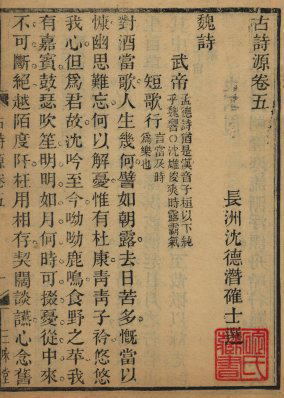 古詩源卷五
長洲沈德潛確士選
魏詩
武帝
孟德詩猶是漢音子桓以下純
乎魏響○沈雄俊爽時露霸氣
短歌行
言當及時
爲樂也
對酒當歌人生幾何譬如朝露去日苦多慨當以
慷幽思難忘何以解憂惟有杜康青青子衿悠悠
我心但爲君故沈吟至今呦呦鹿鳴食野之苹我
有嘉賓鼓瑟吹笙明明如月何時可掇憂從中來
不可斷絕越陌度阡枉用相存契闊談讌心念舊
古詩源卷五